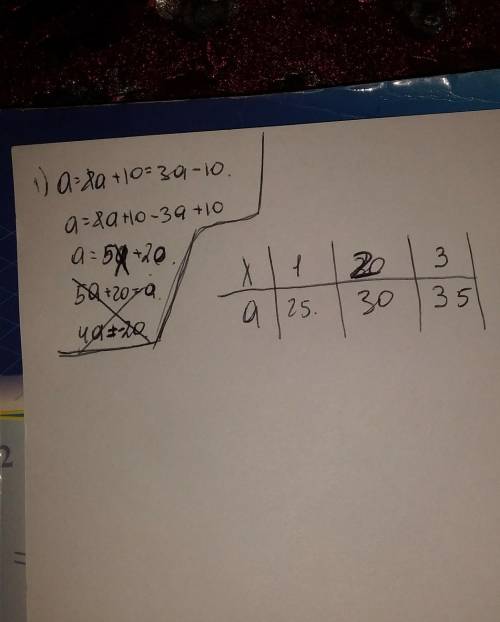 1) a=8a+10=3a-10.
a=8a+10-3a+10
a=5x+20.
5a+20=a
4a=-20
x | 1 | 20 | 3
a | 25. | 30 | 35
2
=